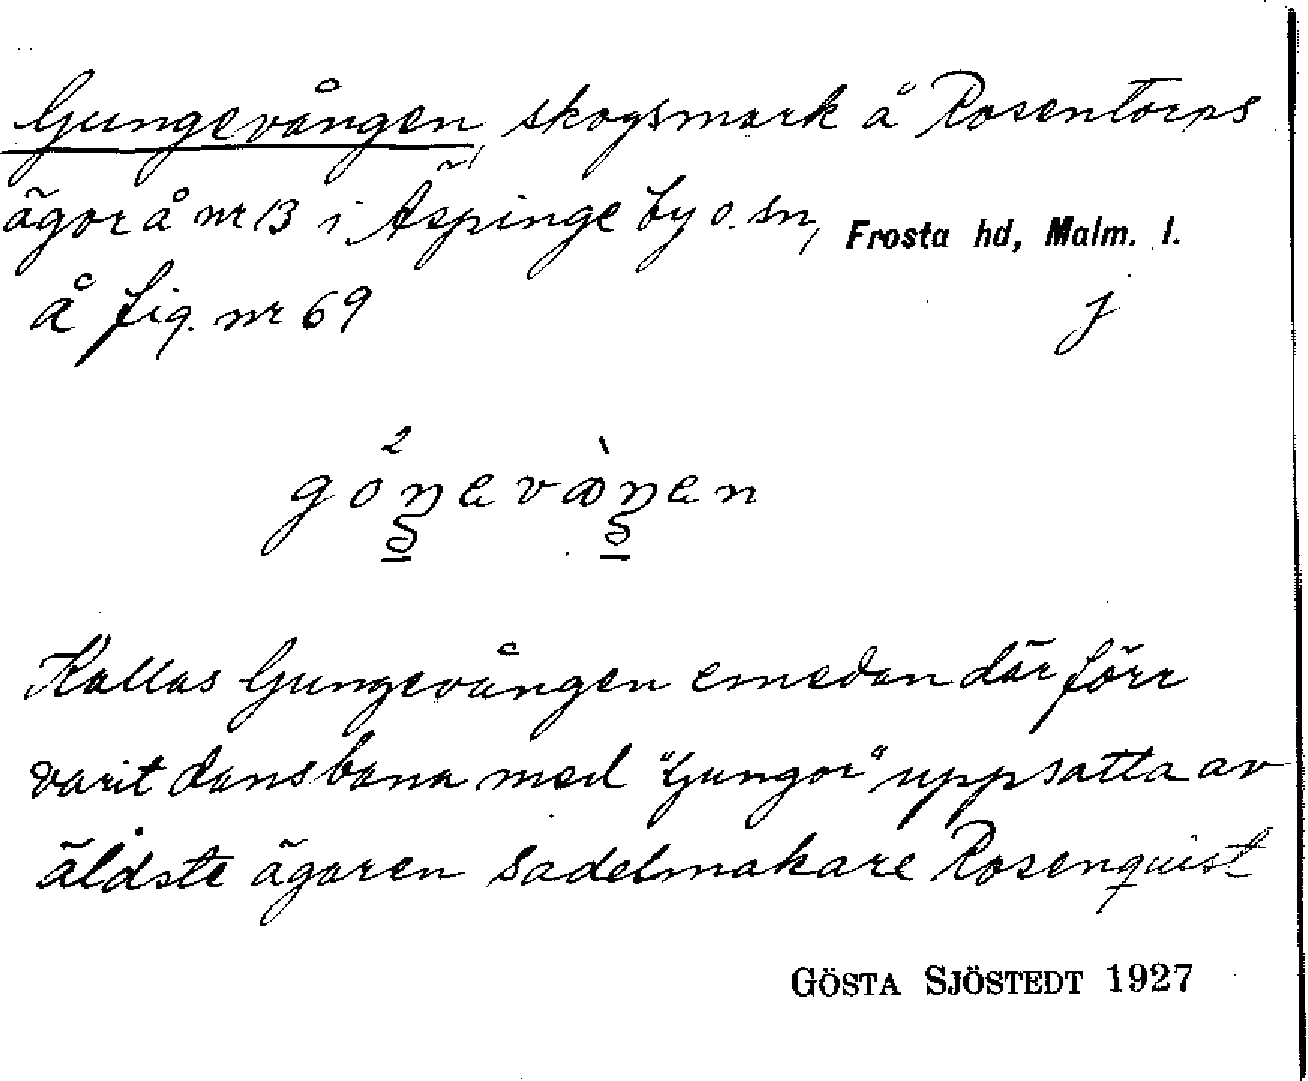 Gungevången, skogsmark å Rosentorps
ägor å nr 13 i Äspinge by o. sn, Frosta hd, Malm. l.
å fig. nr 69 j
Kallas Gungevången emedan där förr
varit dansbana med "gungor" uppsatta av
äldste ägaren sadelmakare Rosenquist
GÖSTA SJÖSTEDT 1927